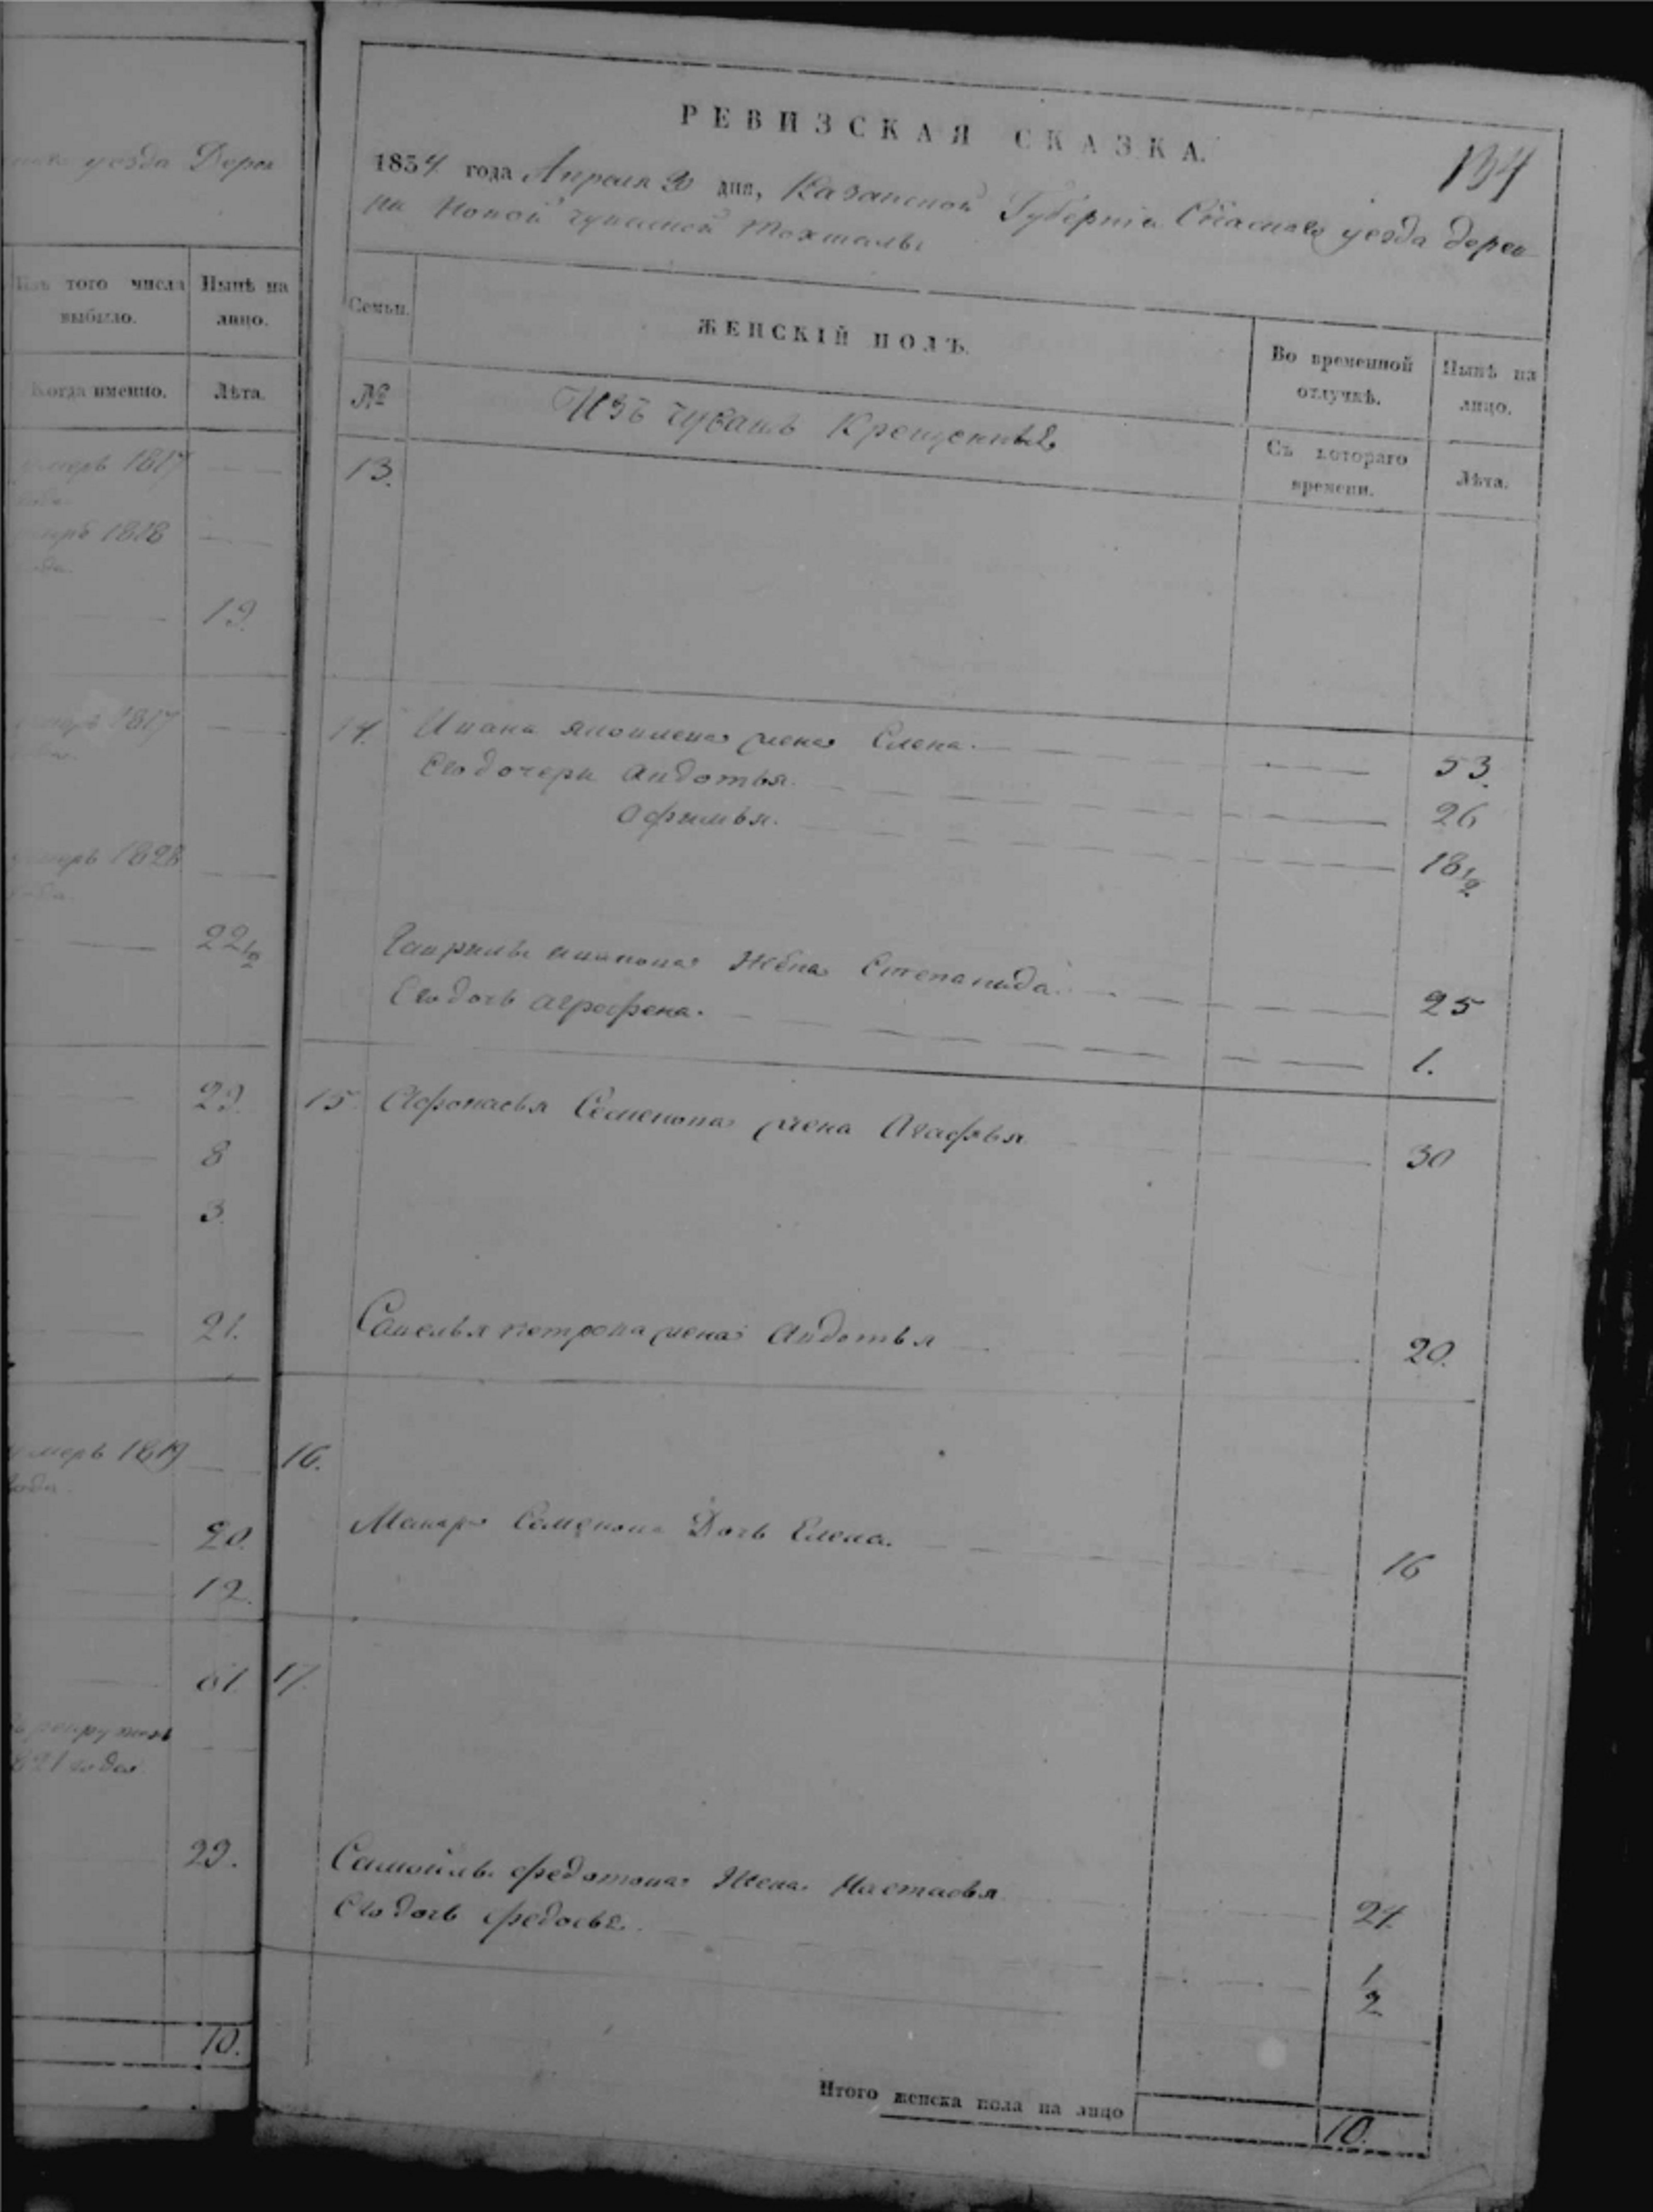 уезда Дерев
Изъ того числа выбыло.
Нынѣ на лицо.
Когда именно.
Лѣта.
умеръ 1817
умеръ 1818
19.
умеръ 1817
умеръ 1828
22 1/2
29.
8
3.
21.
умеръ 1819
года
20.
12.
61.
рекруты
1821 года
29.
10.
РЕВИЗСКАЯ СКАЗКА.
134
1834 года Апреля 30 дня, Казанской Губернiи Спаского уезда дерев
ни Новой чувашской
Семьи.
ЖЕНСКIЙ ПОЛЪ.
Во временной отлучкѣ.
Нынѣ на лицо.
№
Изъ чувашъ Крещенныя
Съ котораго времени.
Лѣта.
13.
14. Ивана жена Елена. 53.
Его дочери Авдотья. 26
Офимья. 18 1/2
Гаврилы иванова Жена Степанида. 25
Его дочь Агрофена. 1.
15. Афонасья Семенова жена Агафья 30
Савелья петрова жена Авдотья 20.
16.
Макара Семенова Дочь Елена. 16
17.
Самойлы федотова Жена Настасья 24
Его дочь федосья. 1/2
Итого женска пола на лицо 10.